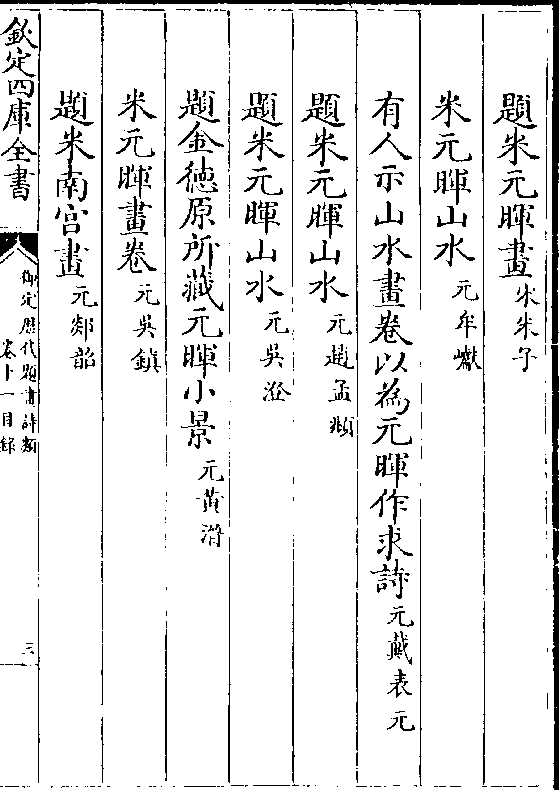 題米元暉畫宋朱子
米元暉山水元牟巘
有人示山水畫卷以為元暉作求詩元戴表元
題米元暉山水元趙孟頫
題米元暉山水元吳澄
題金徳原所藏元暉小景元黄溍
米元暉畫卷元吳鎮
題米南宫畫元郯韶
欽定四庫全書
御定歴代題畫詩類
卷十一目錄
三